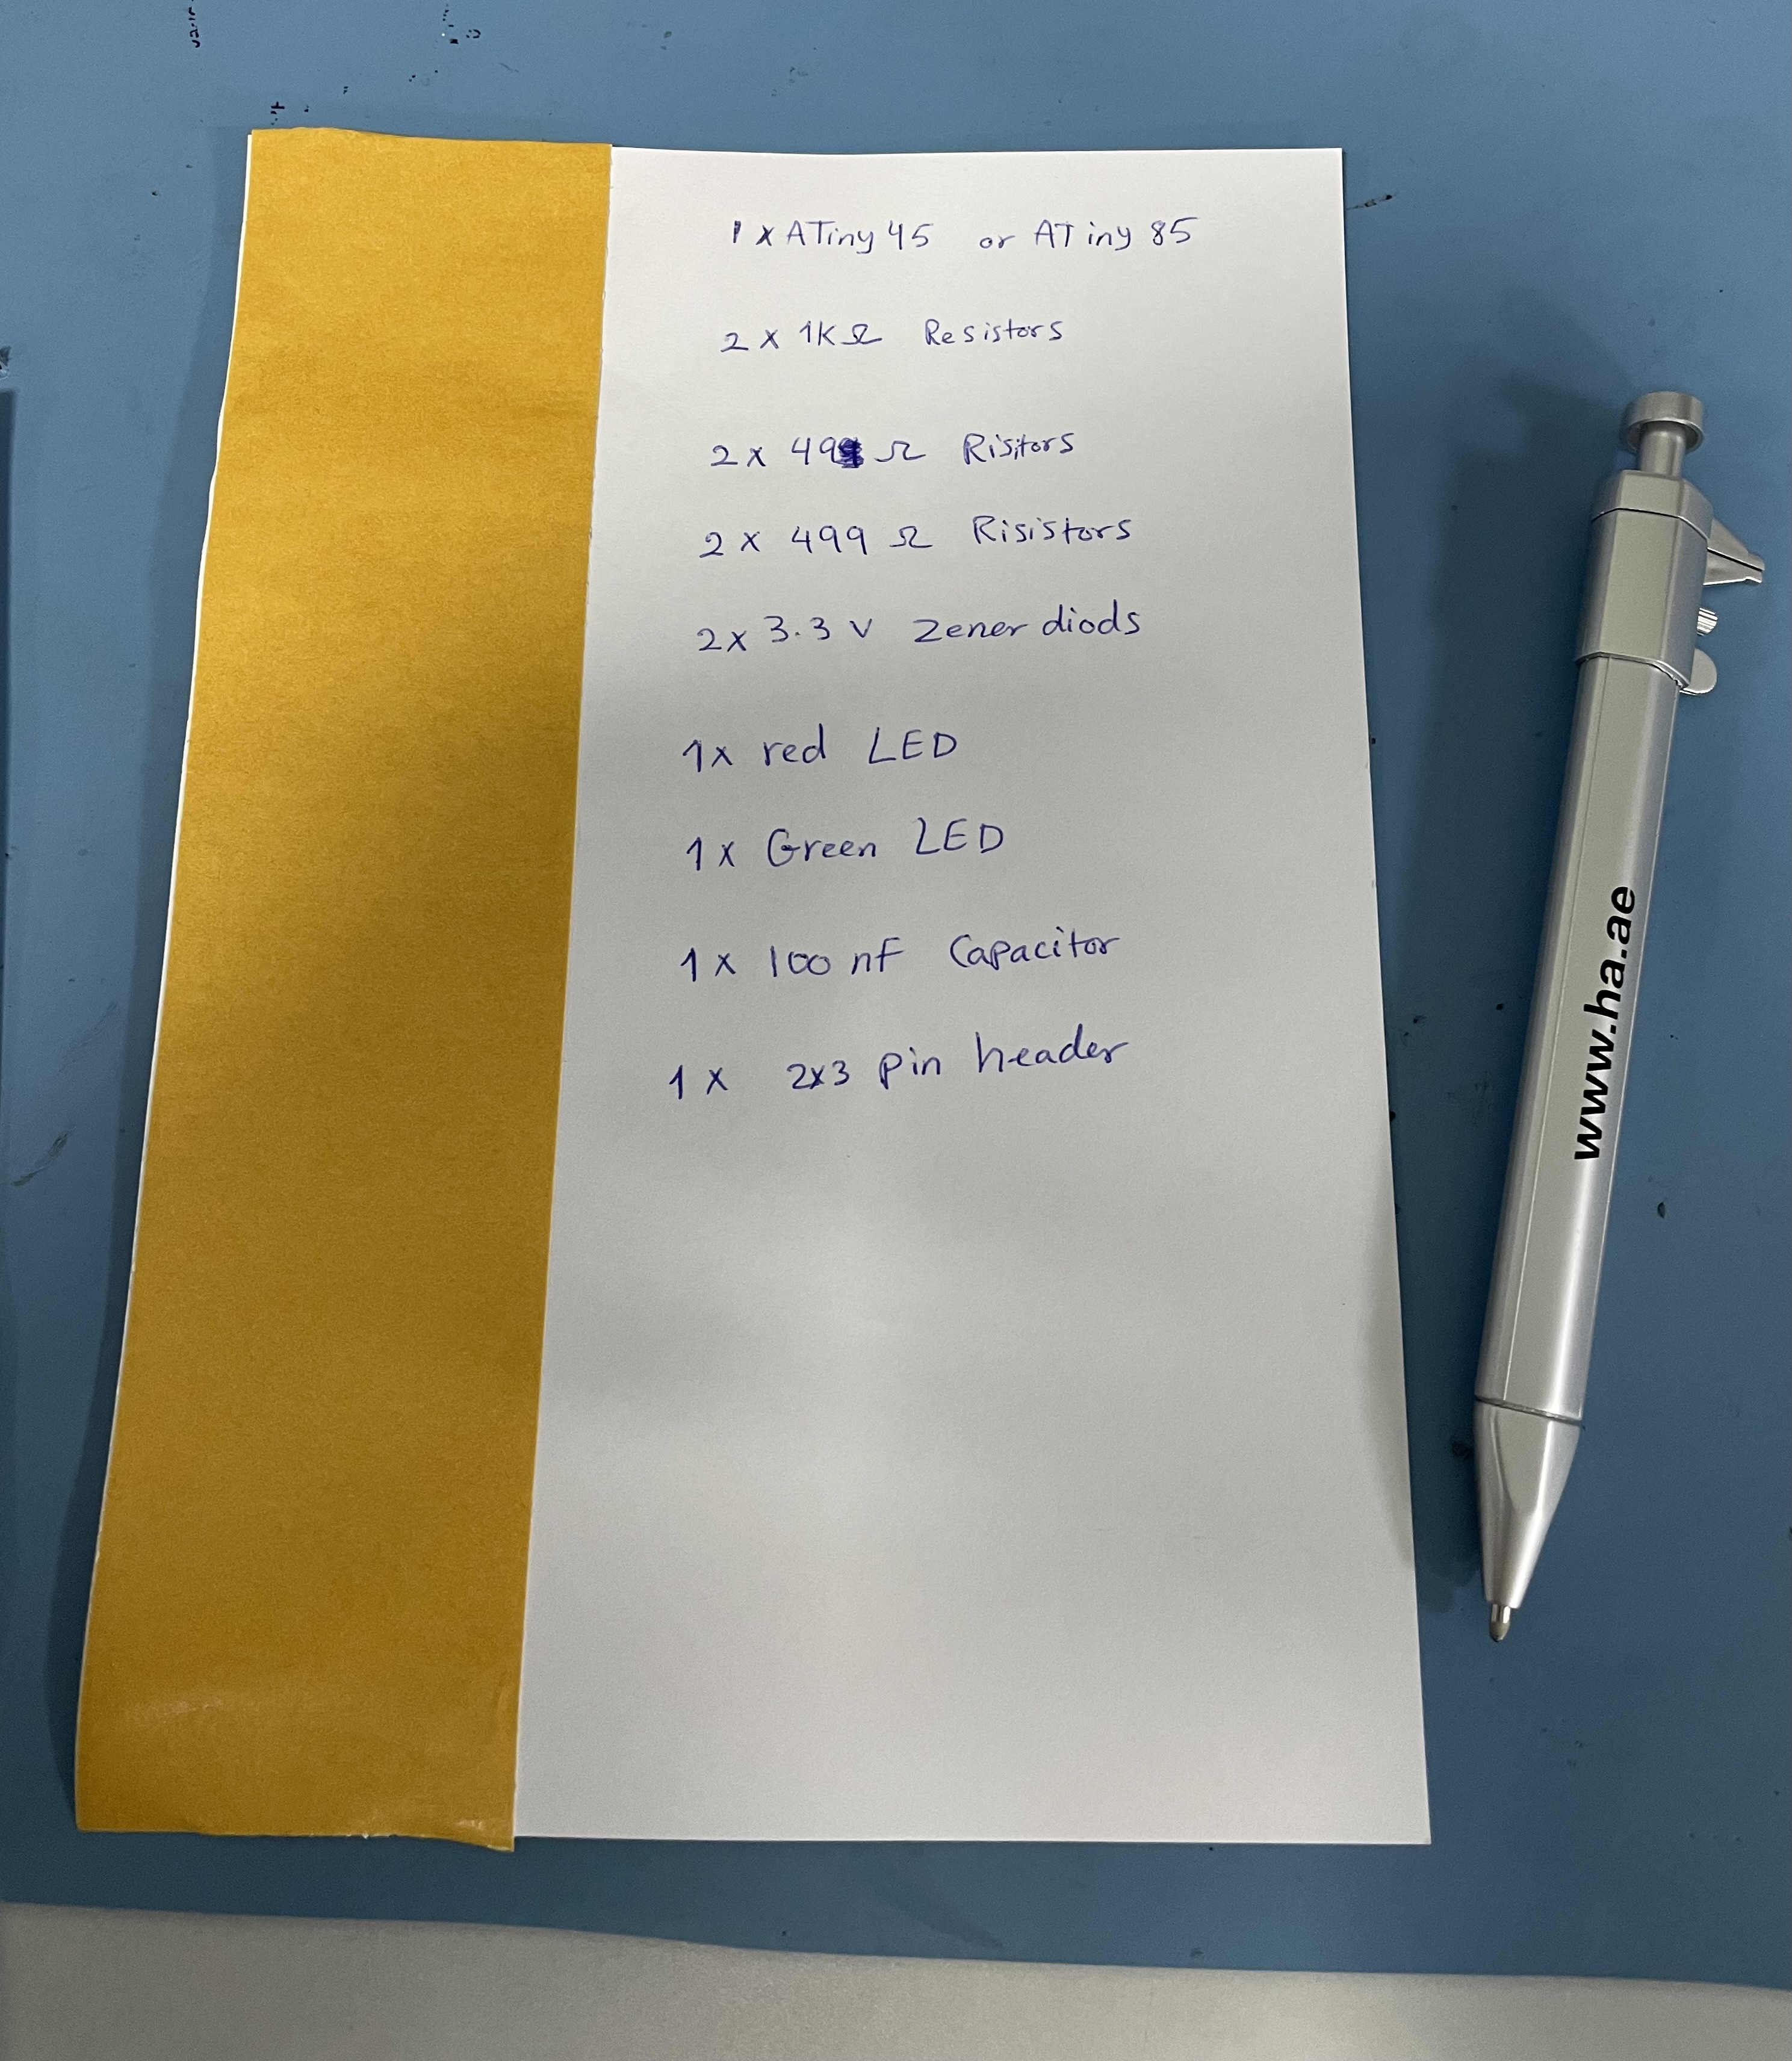 1 x ATiny 45 or ATiny 85
2 x 1K Ω Resistors
2 x 49 Ω Risitors
2 x 499 Ω Risistors
2 x 3.3 V Zener diods
1x red LED
1 x Green LED
1 x 100 nF Capacitor
1 x 2x3 pin header
www.ha.ae